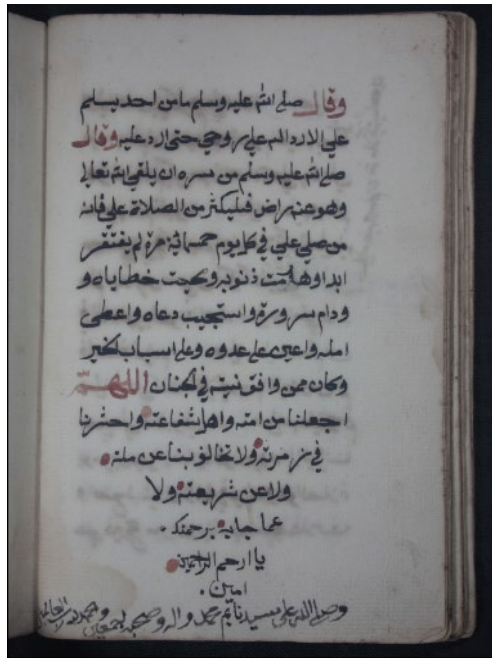 وقال صلى الله عليه وسلم مامن احد يسلم
علي الا رد الله علي روحي حتى ارد عليه وقال
صلى الله عليه وسلم من سره ان يلقي الله تعالى
وهو عنه راض فليكثر من الصلاة علي فانه
من صلى علي في كل يوم خمسمائة مرة لم يفتقر
ابدا وهدمت ذنوبه ومحيت خطاياه و
ودام سروره واستجيب دعاه واعطى
امله واعين على عدوه وعلى اسباب الخير
وكان ممن وافق نبيه في الجنان اللهم
اجعلنا من امته واهل شفاعته واحشرنا
في زمرته ولا تخالف بنا عن ملته
ولا عن شريعته ولا
عما جابه برحمتك
يا ارحم الراحمين
امين
وصلى الله على سيدنا محمد واله وصحبه